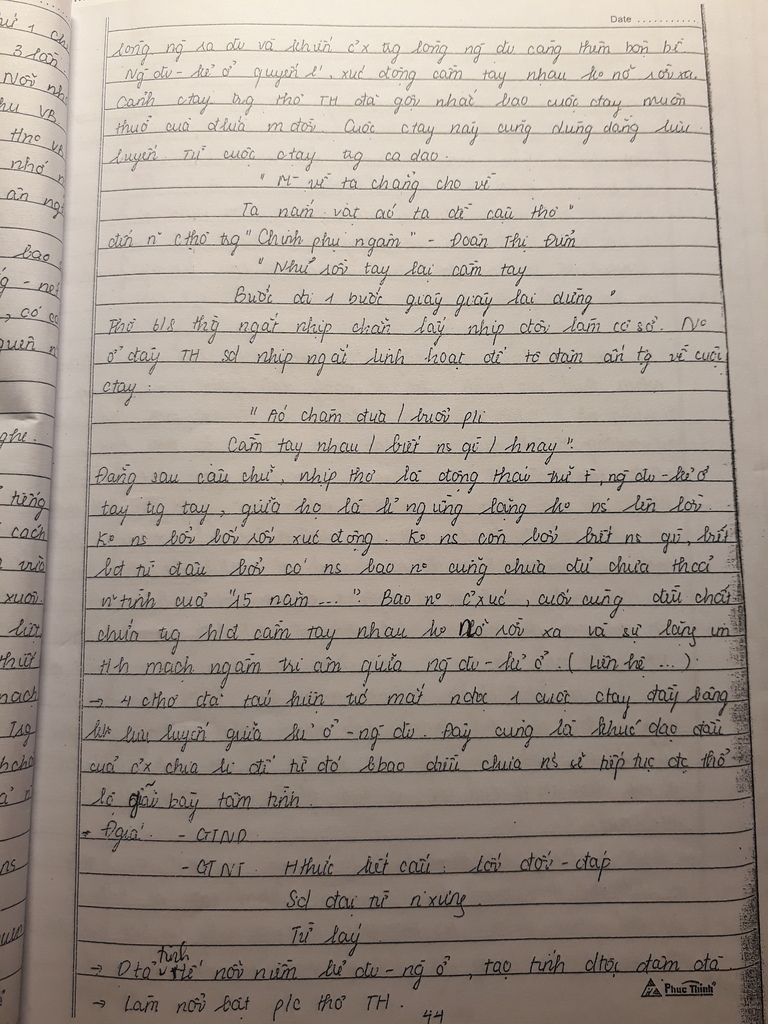 Date ............
lòng ng ra đi và khiến c'x trg lòng ng đi càng thêm bồn bề.
Ng đi - kẻ ở quyến lí, xúc động cầm tay nhau ko nỡ rời xa.
Cảnh ctay trg thơ TH đã gợi nhắc bao cuộc ctay muôn
thuở của đlứa mđời. Cuộc ctay này cũng dùng dằng lưu
luyến. Từ cuộc ctay trg ca dao.
" M~ về ta chẳng cho về
Ta nắm vạt áo ta đề câu thơ "
đến n~ cthơ trg " Chinh phụ ngâm " - Đoàn Thị Điểm
" Nhủ rồi tay lại cầm tay
Bước đi 1 bước giây giây lại dừng "
Thơ 6/8 thg ngắt nhịp chẵn lấy nhịp đôi làm cơ sở. No
ở đây TH sd nhịp ngắt linh hoạt để tô đậm ấn tg về cuộc
ctay :
" Áo chàm đưa / buổi pli
Cầm tay nhau / biết ns gì / hnay ".
Đằng sau câu chữ, nhịp thơ là động thái trữ t~, ng đi - kẻ ở
tay trg tay, giữa họ là lí ngừng lặng ko ns lên lời.
Ko ns bởi bối rối xúc động. Ko ns còn bởi biết ns gì, biết
bđ từ đâu bởi có ns bao no cũng chưa đủ chưa thoả
n~ tình của "15 năm ...". Bao no c'xúc, cuối cùng đều chất
chứa trg h/đ cầm tay nhau ko nỡ rời xa và sự lặng im
Hh mạch ngầm tri âm giữa ng đi - kẻ ở. ( Liên hệ ... )
→ 4 cthơ đã tái hiện trc mắt nđọc 1 cuộc ctay đầy bâng
lưu luyến giữa kẻ ở - ng đi. Đây cũng là khúc dạo đầu
của c'x chia li để từ đó bbao điều chưa ns sẽ tiếp tục đc thổ
lộ giãi bày tâm tình.
* Đgiá : - GTND
- GTNT Hthức kết cấu : lối đối - đáp
Sd đại từ n~xưng
Từ láy
→ Dtả tinh tế nỗi niềm kẻ đi - ng ở, tạo tính dtộc đậm đà.
→ Làm nổi bật p/c thơ TH.
Phúc Thịnh
44